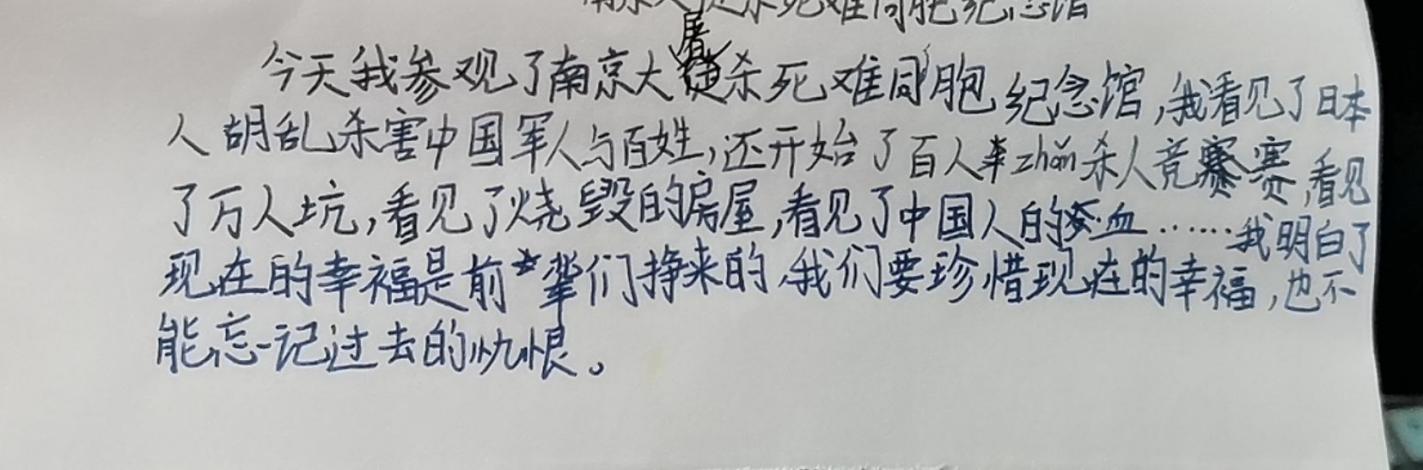 南京大徒杀死难同胞纪念馆
今天我参观了南京大屠杀死难同胞纪念馆,我看见了日本
人胡乱杀害中国军人与百姓,还开始了百人zhǎn杀人竞赛,看见
了万人坑,看见了烧毁的房屋,看见了中国人的血……我明白了
现在的幸福是前辈们挣来的,我们要珍惜现在的幸福,也不
能忘记过去的忧恨。